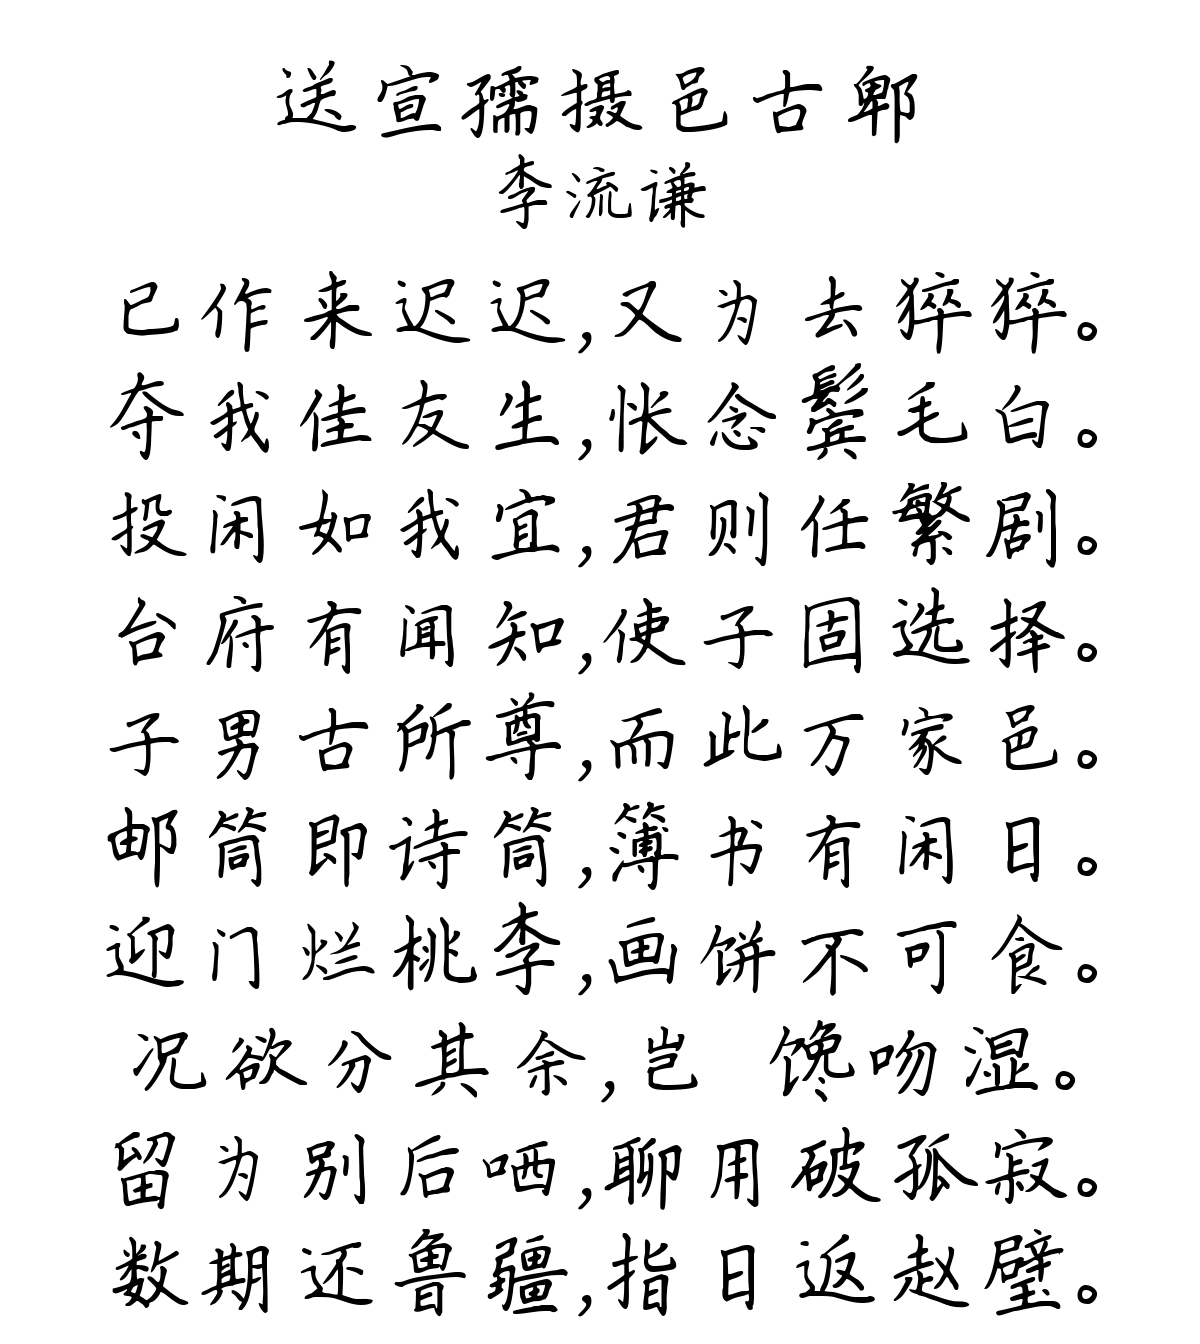 送宣孺摄邑古郫
李流谦
已作来迟迟,又为去猝猝。
夺我佳友生,怅念鬓毛白。
投闲如我宜,君则任繁剧。
台府有闻知,使子固选择。
子男古所尊,而此万家邑。
邮筒即诗筒,簿书有闲日。
迎门烂桃李,画饼不可食。
况欲分其余,岂 馋吻湿。
留为别后哂,聊用破孤寂。
数期还鲁疆,指日返赵璧。